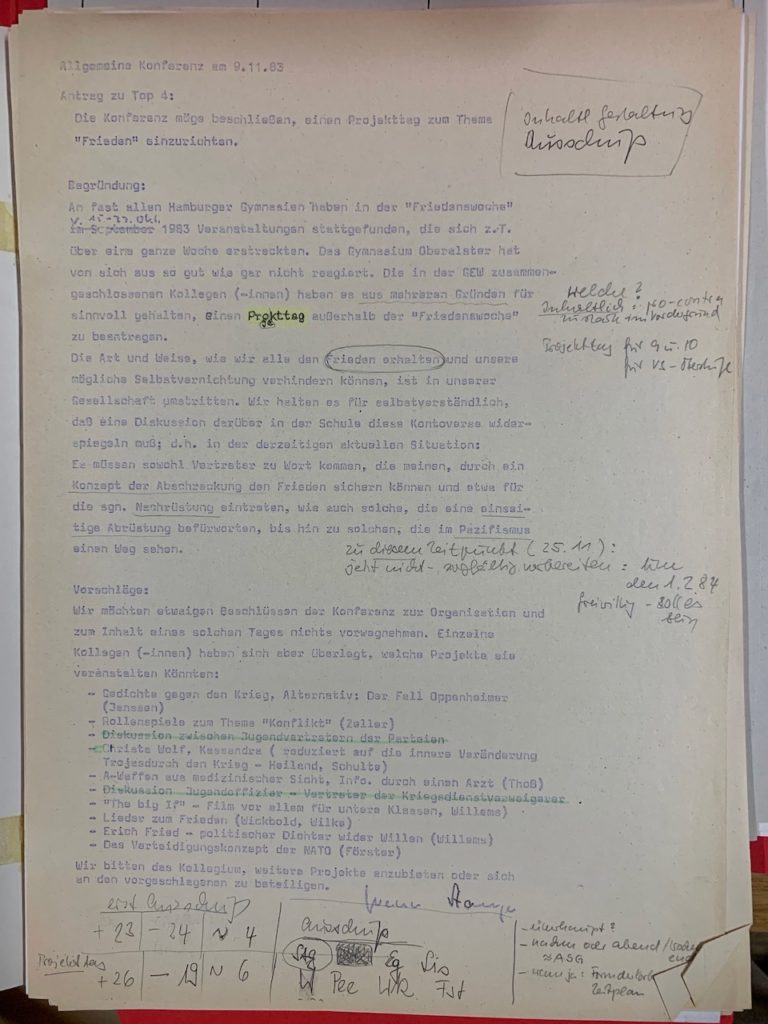 Allgemeine Konferenz am 9.11.83
Antrag zu Top 4:
Die Konferenz möge beschließen, einen Projekttag zum Thema
"Frieden" einzurichten.
Inhalte Gestaltung
Ausschuß
Begründung:
An fast allen Hamburger Gymnasien haben in der "Friedenswoche"
v. 15.-22. Okt.
im September 1983 Veranstaltungen stattgefunden, die sich z.T.
über eine ganze Woche erstreckten. Das Gymnasium Oberalster hat
von sich aus so gut wie gar nicht reagiert. Die in der GEW zusammen-
geschlossenen Kollegen (-innen) haben es aus mehreren Gründen für
sinnvoll gehalten, einen Projekttag außerhalb der "Friedenswoche"
zu beantragen.
welche?
Inhaltlich: pro-contra
zu stark im Vordergrund
Projekttag für 9 u. 10
für VS-Oberstufe
Die Art und Weise, wie wir alle den Frieden erhalten und unsere
mögliche Selbstvernichtung verhindern können, ist in unserer
Gesellschaft umstritten. Wir halten es für selbstverständlich,
daß eine Diskussion darüber in der Schule diese Kontoverse wider-
spiegeln muß; d.h. in der derzeitigen aktuellen Situation:
Es müssen sowohl Vertreter zu Wort kommen, die meinen, durch ein
Konzept der Abschreckung den Frieden sichern können und etwa für
die sgn. Nachrüstung eintreten, wie auch solche, die eine einsei-
tige Abrüstung befürworten, bis hin zu solchen, die im Pazifismus
einen Weg sehen.
zu diesem Zeitpunkt (25.11):
jetzt nicht - sorgfältig vorbereiten: um
den 1.2.84
freiwillig - soll es
sein
Vorschläge:
Wir möchten etwaigen Beschlüssen der Konferenz zur Organisation und
zum Inhalt eines solchen Tages nichts vorwegnehmen. Einzelne
Kollegen (-innen) haben sich aber überlegt, welche Projekte sie
veranstalten Könnten:
- Gedichte gegen den Krieg, Alternativ: Der Fall Oppenheimer
(Janssen)
- Rollenspiele zum Thema "Konflikt" (Zeller)
- Diskussion zwischen Jugendvertretern der Parteien
- Christa Wolf, Kassandra ( reduziert auf die innere Veränderung
Trojasdurch den Krieg - Heiland, Schulte)
- A-Waffen aus medizinischer Sicht, Info. durch einen Arzt (Thoß)
- Diskussion Jugendoffizier - Vertreter der Kriegsdienstverweigerer
- "The big If" - Film vor allem für untere Klassen, Willems)
- Lieder zum Frieden (Wickbold, Wilke)
- Erich Fried - politischer Dichter wider Willen (Willems)
- Das Verteidigungskonzept der NATO (Förster)
Wir bitten das Kollegium, weitere Projekte anzubieten oder sich
an den vorgeschlagenen zu beteiligen.
erst Ausschuß
+ 23 - 24 ~ 4
Projekttag
+26 - 19 ~ 6
Ausschuß
Stg Eg Sis
Pee Wk Fst
- überhaupt?
- nachm oder abend/Wochen
end
≈ ASG
- wenn ja:
Zeitplan